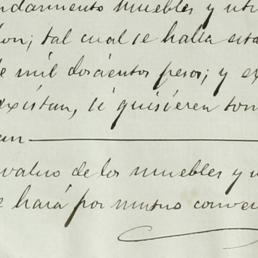 ndamiento muebles y uten
don; tal cual se halla esta
de mil doscientos pesos; y e
existan, si quisieren tom
an
valuo de los muebles y u
se hará por mutuo conve